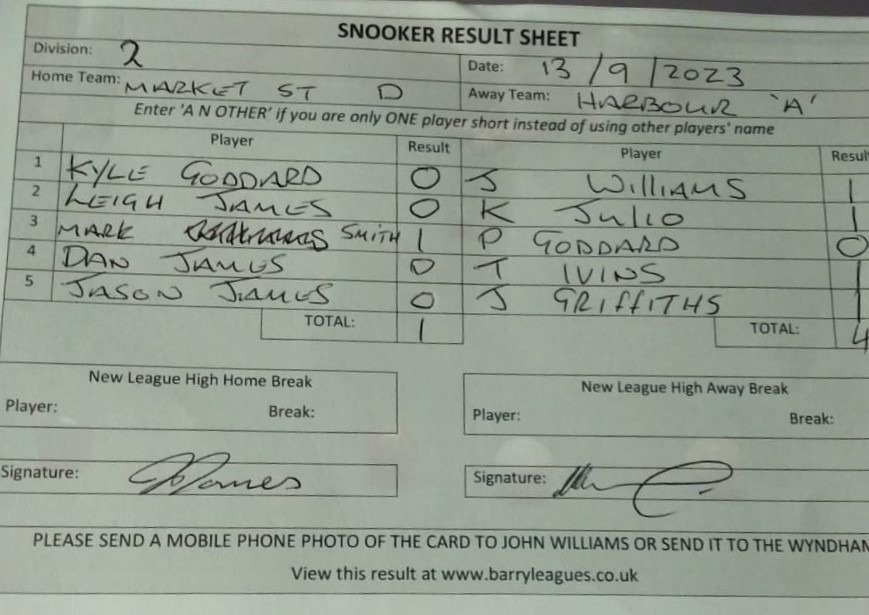 SNOOKER RESULT SHEET
Division: 2
Date: 13/9/2023
Home Team: MARKET ST D
Away Team: HARBOUR 'A'
Enter 'A N OTHER' if you are only ONE player short instead of using other players' name
Player Result Player Resul
1 KYLE GODDARD 0 J WILLIAMS 1
2 LEIGH JAMES 0 K JULIO 1
3 MARK SMITH 1 P GODDARD 0
4 DAN JAMES 0 T IVINS 1
5 JASON JAMES 0 J GRIFFITHS 1
TOTAL: 1 TOTAL: 4
New League High Home Break New League High Away Break
Player: Break: Player: Break:
Signature: Signature:
PLEASE SEND A MOBILE PHONE PHOTO OF THE CARD TO JOHN WILLIAMS OR SEND IT TO THE WYNDHAM
View this result at www.barryleagues.co.uk